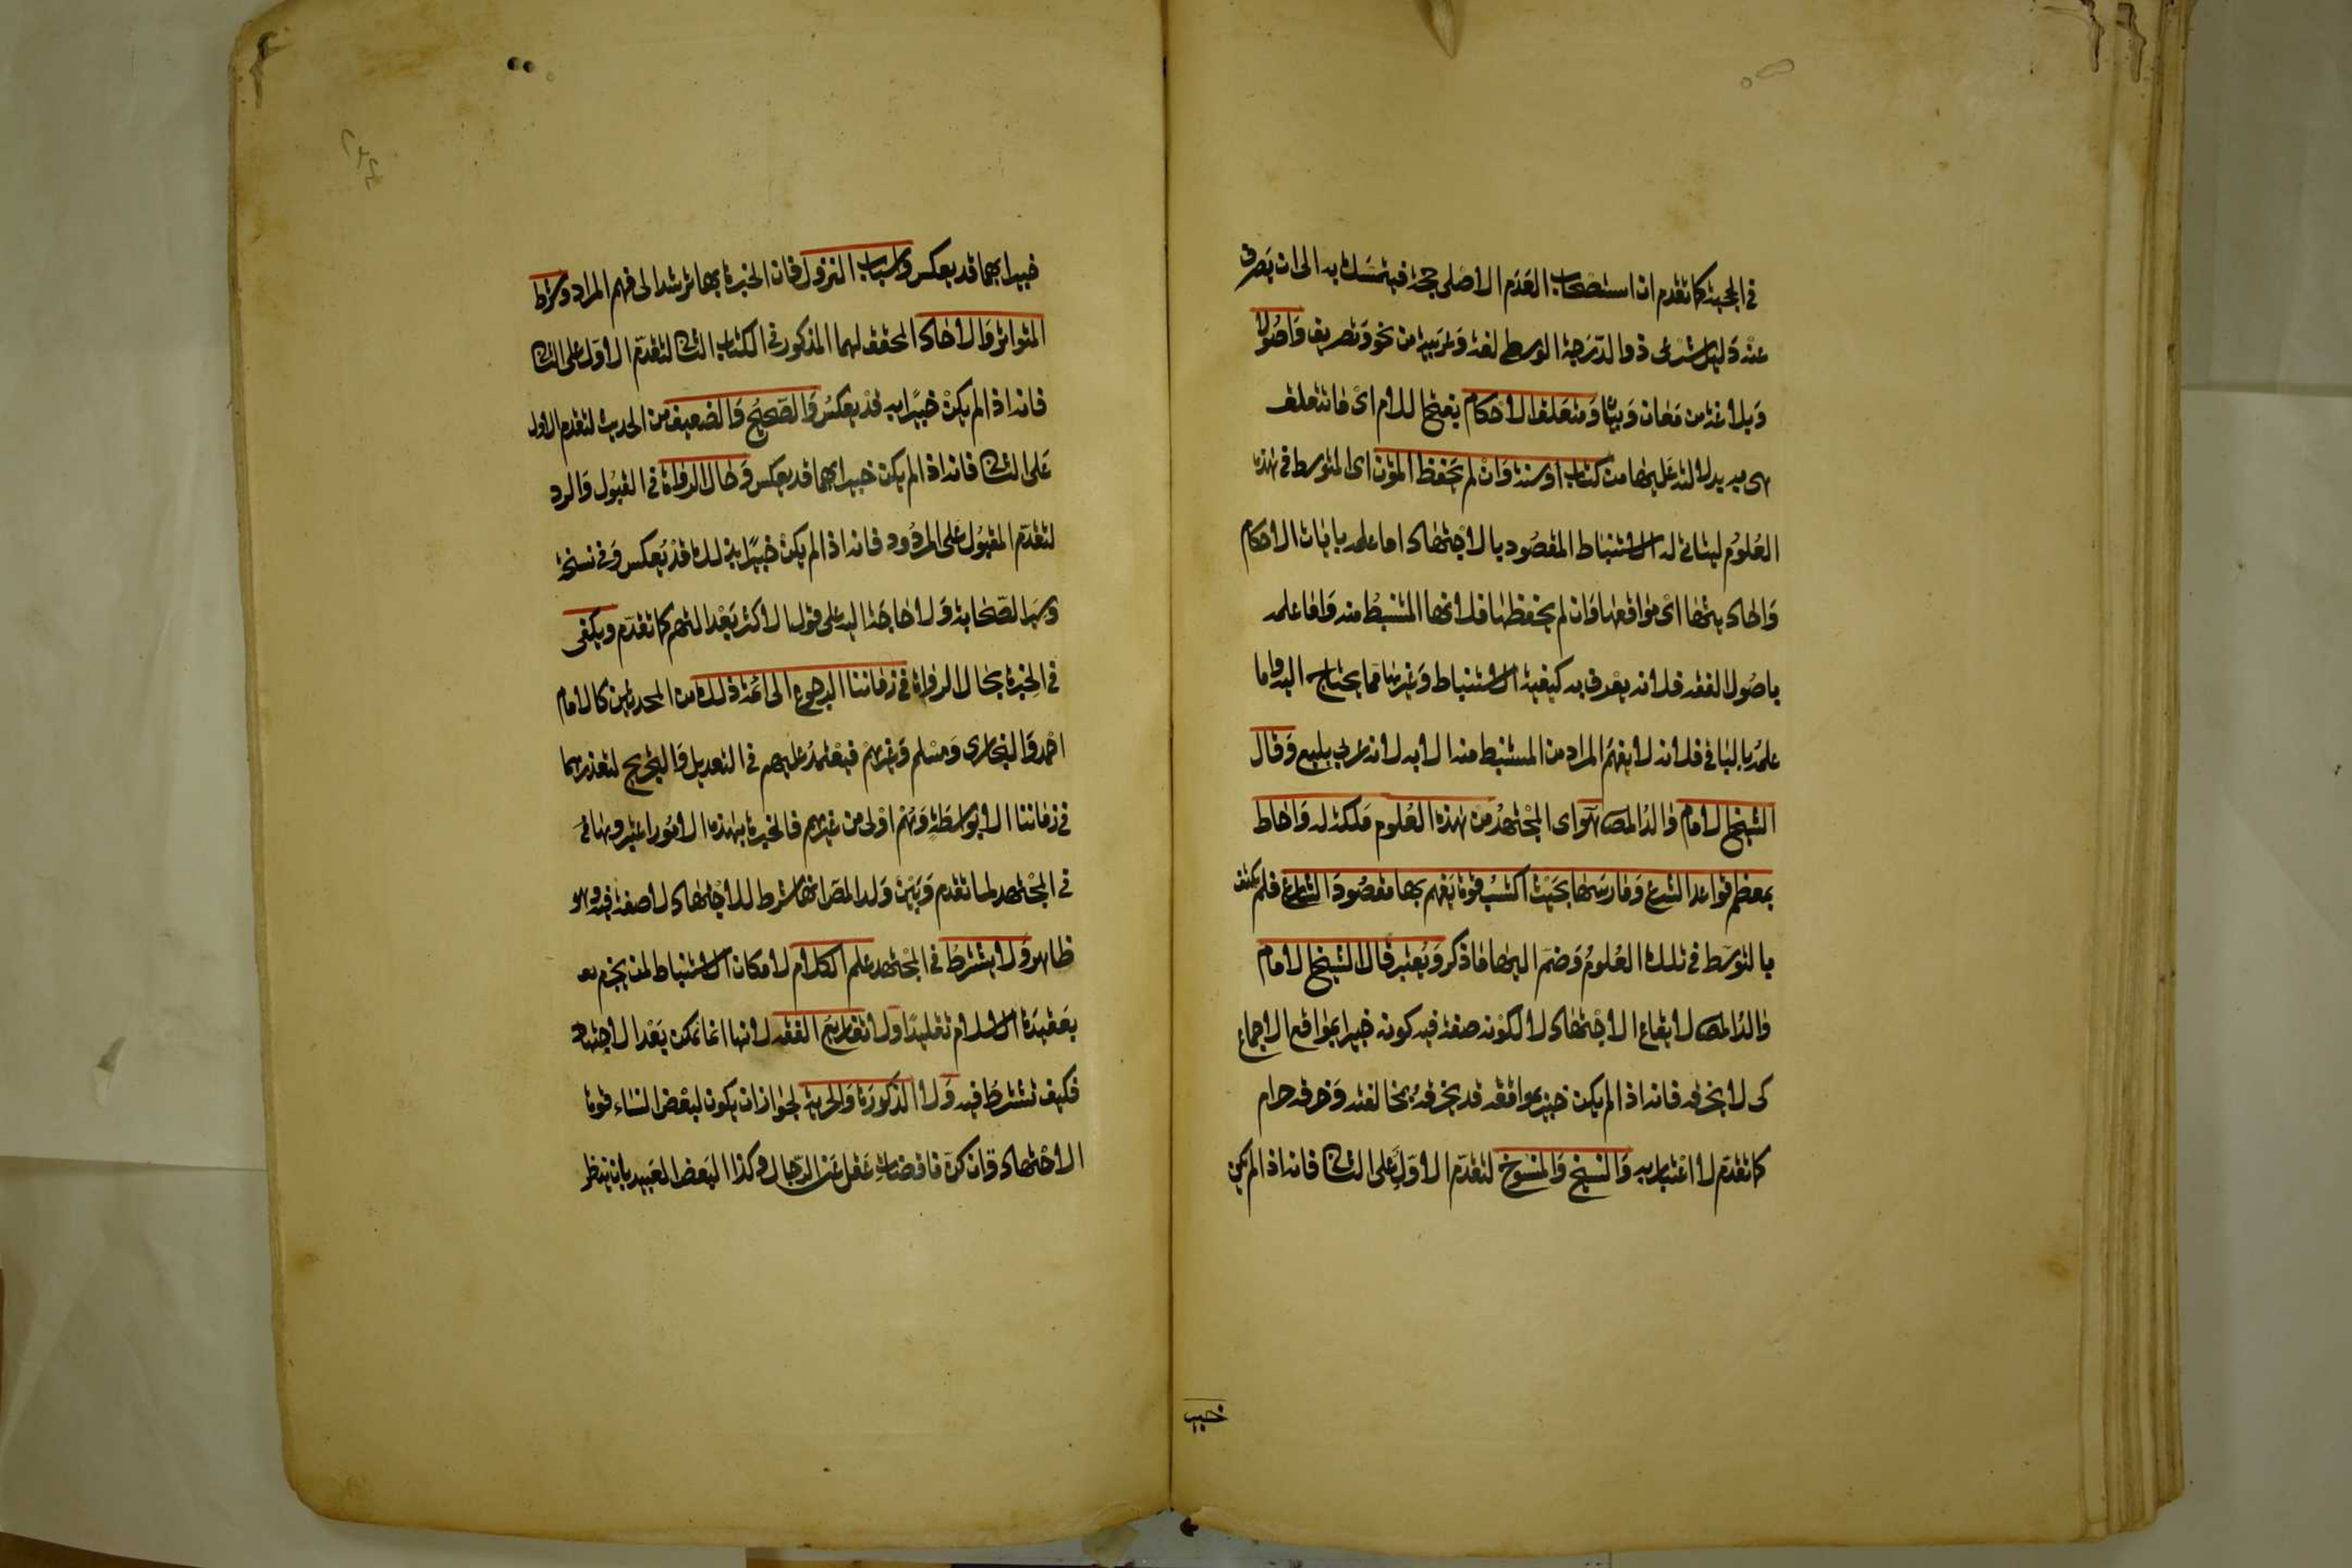 في الحجية كما تقدم ان استصحاب العدم الاصلي حجة فيتمسك به الى ان يصرف
عنه دليل شرعي ذو الدرجة الوسطى لغة وعربية من نحو وتصريف واصولا
وبلاغة من معان وبيان ومتعلق الاحكام بفتح اللام اى ما تتعلق
هى به بدلالته عليها من كتاب او سنة وان لم يحفظ المتون اى المتوسط في هذه
العلوم ليتاتى له الاستنباط المقصود بالاجتهاد اما علمه بايات الاحكام
واحاديثها اى مواقعها وان لم يحفظها فلانها المستنبط منه واما علمه
باصول الفقه فلانه يعرف به كيفية الاستنباط وغيرها مما يحتاج اليه واما
علمه بالباقي فلانه لا يفهم المراد من المستنبط منه الا به لانه عربي بليغ وقال
الشيخ الامام والد المص هو اى المجتهد من هذه العلوم ملكة له واحاط
بمعظم قواعد الشرع ومارسها بحيث اكتسب قوة يفهم بها مقصود الشارع فلم يكتف
بالتوسط في تلك العلوم وضم اليها ما ذكر ويعتبر قال الشيخ الامام
والد المص لايقاع الاجتهاد لا لكونه صفة فيه كونه خبيرا بمواقع الاجماع
كى لا يخرقه فانه اذا لم يكن خبيرا بمواقعه قد يخرقه بمخالفته وخرقه حرام
كما تقدم لا اعتبار به والنسخ والمنسوخ لتقدم الاول على الثانى فانه اذا لم يكن
خبير
خبيرا بهما قد يعكس واسباب النزول فان الخبرة بها ترشد الى فهم المراد وشرط
المتواتر والاحاد المحقق لهما المذكور في الكتاب الثانى لتقدم الاول على الثانى
فانه اذا لم يكن خبيرا به قد يعكس والصحيح والضعيف من الحديث لتقدم الاول
على الثانى فانه اذا لم يكن خبيرا بهما قد يعكس وحال الرواة في القبول والرد
لتقدم المقبول على المردود فانه اذا لم يكن خبيرا بذلك قد يعكس وفى نسخة
وسير الصحابة ولا حاجة اليه على قول الاكثر بعدالتهم كما تقدم ويكفى
في الخبرة بحال الرواة في زماننا الرجوع الى ائمة ذلك من المحدثين كالامام
احمد والبخارى ومسلم وغيرهم فيعتمد عليهم في التعديل والتجريح لتعذرهما
في زماننا الا بواسطة وهم اولى من غيرهم فالخبرة بهذه الامور اعتبروها في
في المجتهد لما تقدم وبين ولد المص انها شرط للاجتهاد لا صفة فيه وهو
ظاهر ولا يشترط في المجتهد علم الكلام لامكان الاستنباط لمن يجزم
بعقيدة الاسلام تقليدا ولا تفاريع الفقه لانها انما تمكن بعد الاجتهاد
فكيف تشترط فيه ولا الذكورة والحرية لجواز ان يكون لبعض النساء قوة
الاجتهاد وان كن ناقصات عقل عن الرجال وكذا البعض العبيد بان ينظر